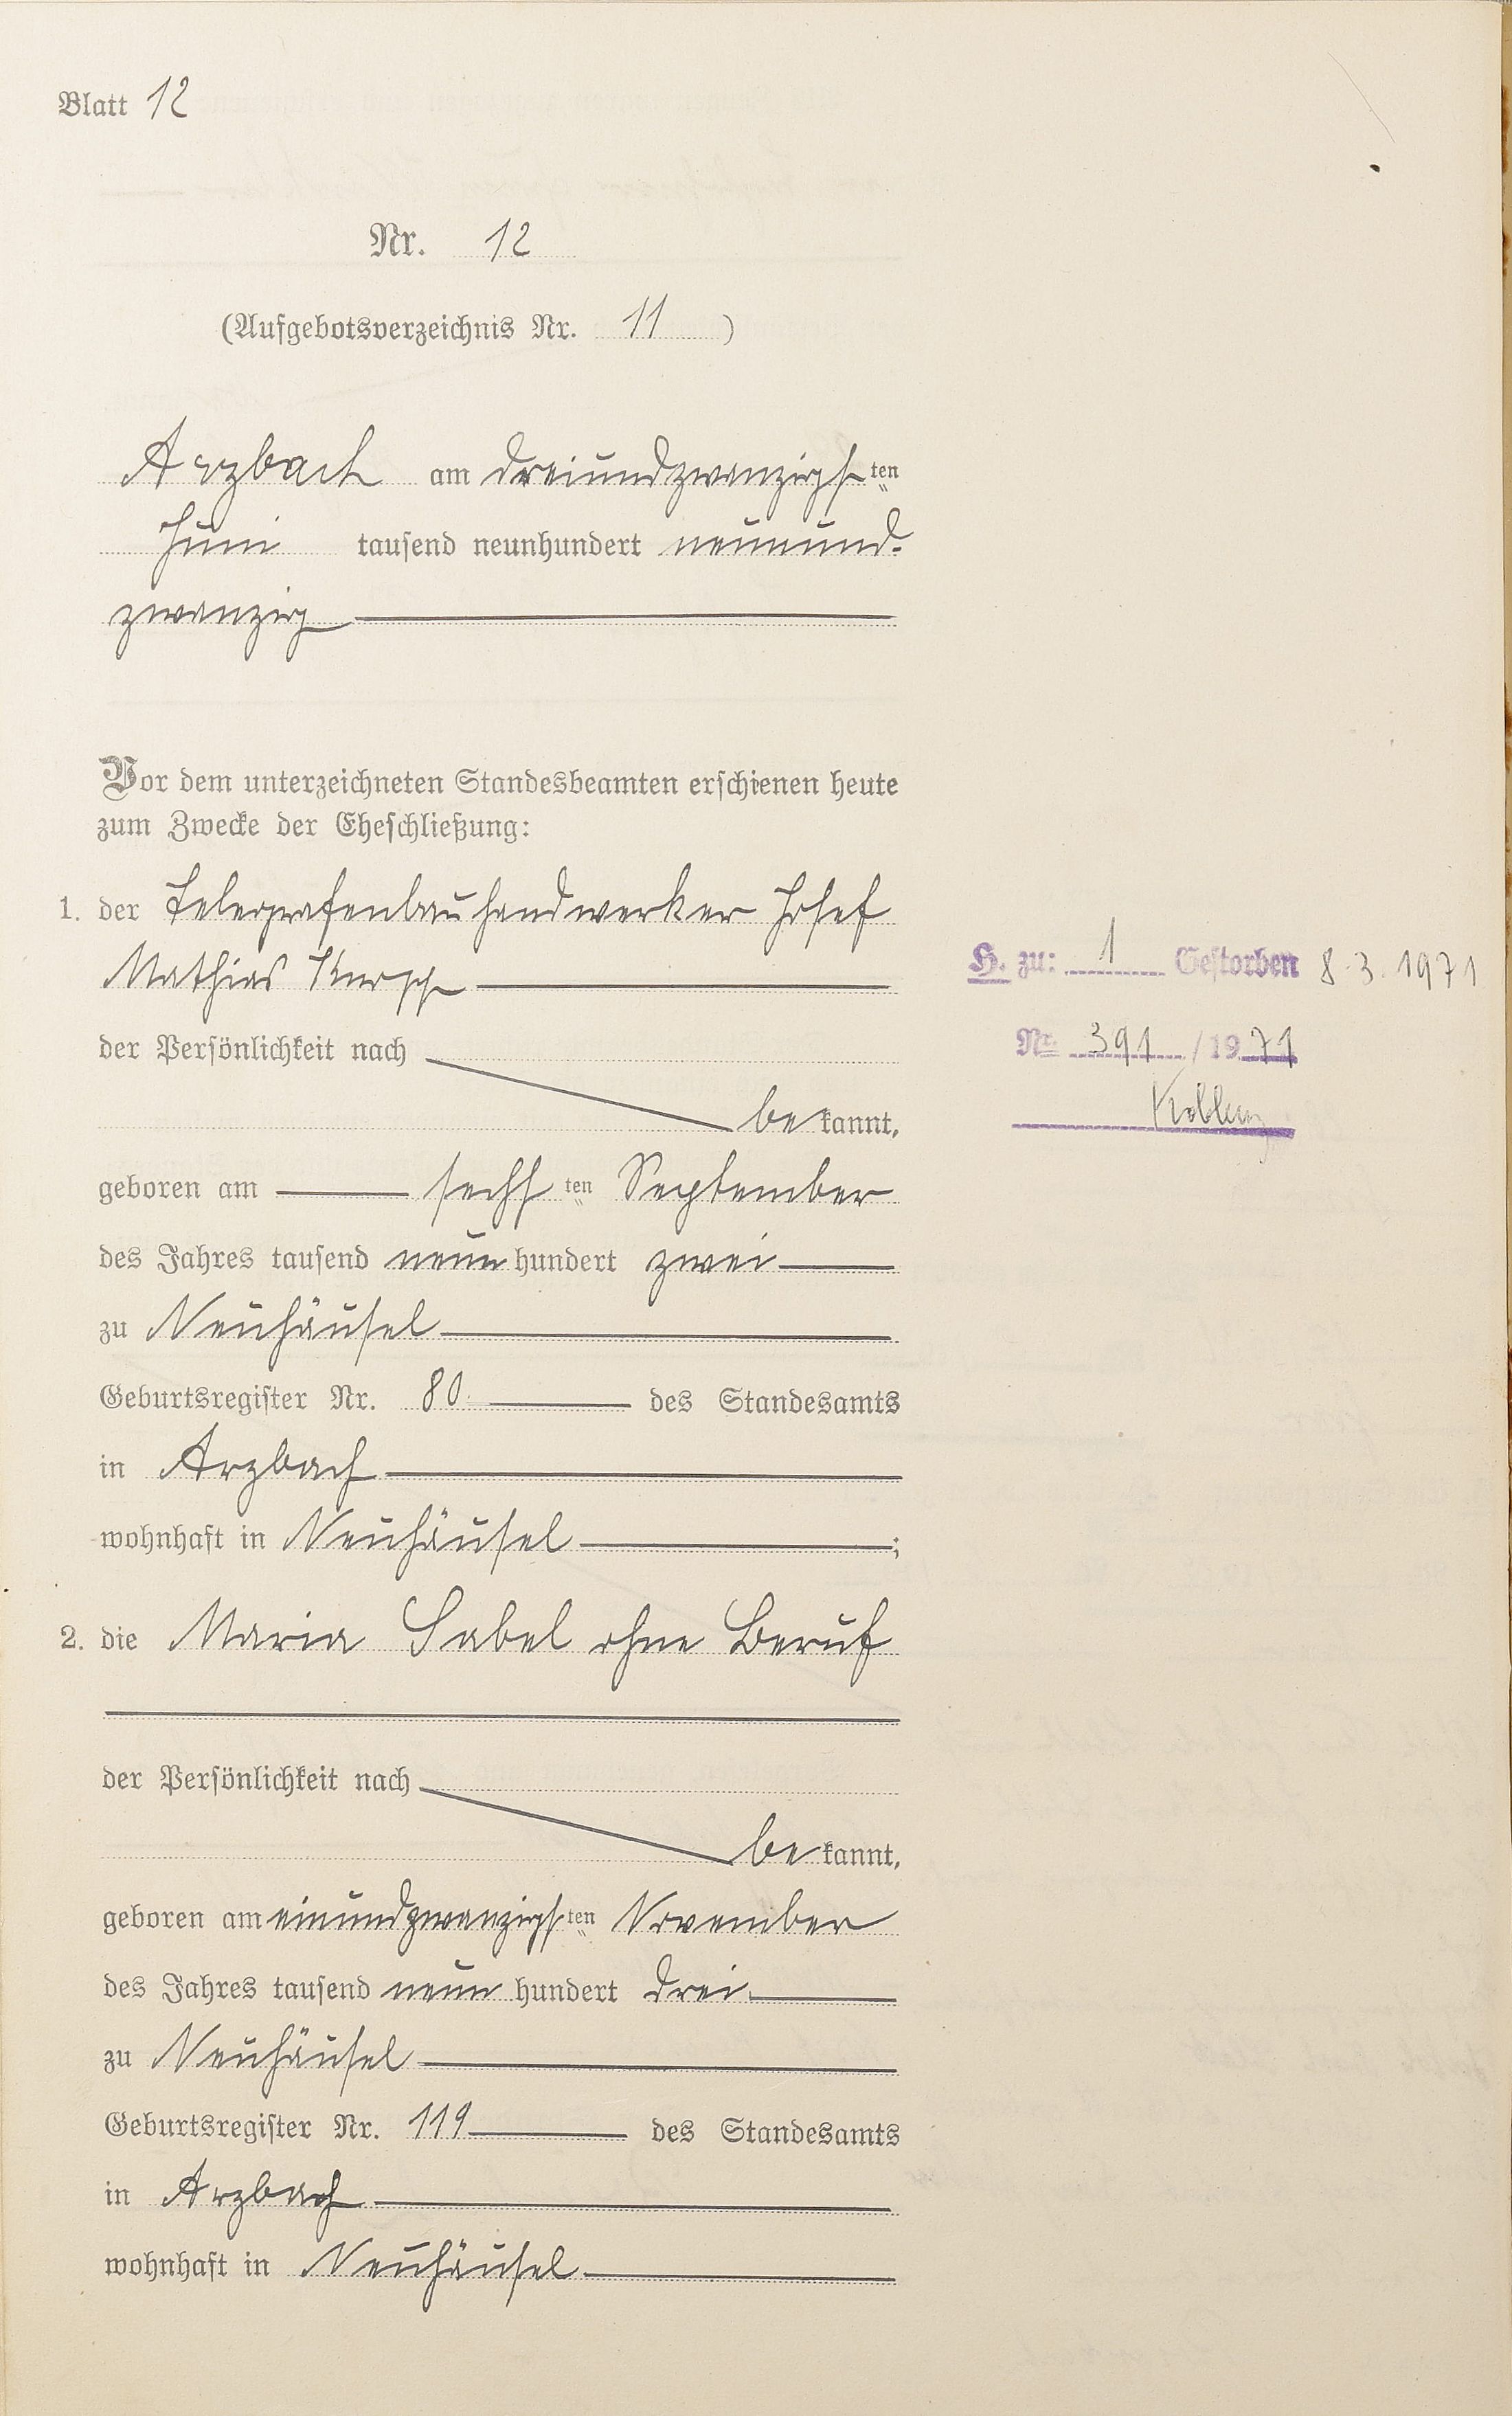 Blatt 12
Nr. 12
(Aufgebotsverzeichnis Nr. 11 )
Arzbach am dreiundzwanzigsten
Juni tausend neunhundert neunund-
zwanzig
Vor dem unterzeichneten Standesbeamten erschienen heute
zum Zwecke der Eheschließung:
1. der Telegrafenbauhandwerker Josef
Mathias
der Persönlichkeit nach
bekannt,
geboren am sechsten September
des Jahres tausend neunhundert zwei
zu Neuhäusel
Geburtsregister Nr. 80 des Standesamts
in Arzbach
wohnhaft in Neuhäusel ;
H. zu: 1 Gestorben 8.3.1971
Nr. 391 / 1971
Koblenz
2. die Maria Sabel ohne Beruf
der Persönlichkeit nach
bekannt,
geboren am einundzwanzigsten November
des Jahres tausend neunhundert drei
zu Neuhäusel
Geburtsregister Nr. 119 des Standesamts
in Arzbach
wohnhaft in Neuhäusel